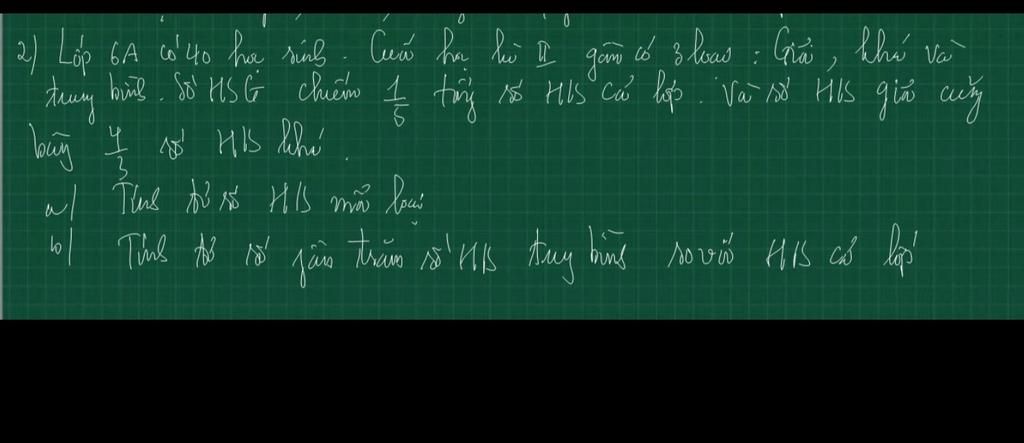 2) Lớp 6A có 40 học sinh. Cuối học kì II gồm có 3 loại: Giỏi, khá và
trung bình. Số HSG chiếm 1/5 tổng số HS cả lớp. Và số HS giỏi cũng
bằng 4/3 số HS khá.
a/ Tính tỉ số HS mỗi loại
b/ Tính tỉ số phần trăm số HS trung bình so với HS cả lớp